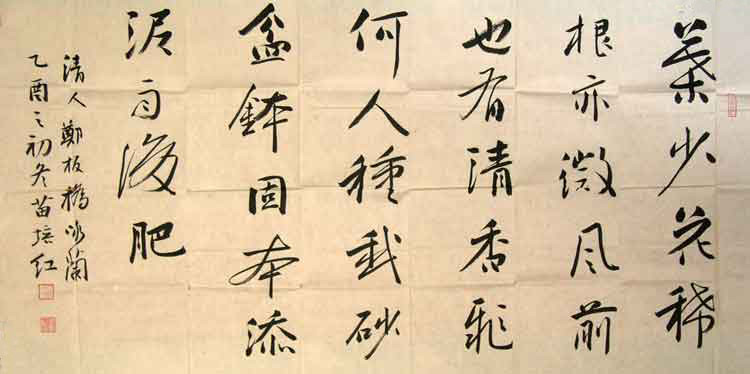 葉少花稀
根亦微风前
也有清香飛
何人種我砂
盆鉢固本添
泥自後肥
清人鄭板橋咏蘭
乙酉之初冬苗培红